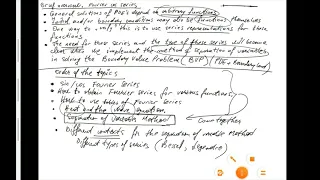 Brief overview, Fourier sin series
- General solutions of PDE's depend on arbitrary functions
- Initial and/or boundary conditions may also be functions themselves
- One way to imply this is to use series representations for these functions.
- The need for these series and the type of these series will become clear when we implement the method of separation of variables in solving the Boundary Value Problem (BVP) (PDE + Boundary Cond)
Order of the topics
- Sin/cos Fourier Series
- How to obtain Fourier series for various functions
- How to use tables of Fourier Series
- Heat and the wave equations
- Separation of Variable Method
Come together
- Different contexts for the separation of variable method
Different types of series (Bessel, Legendre)